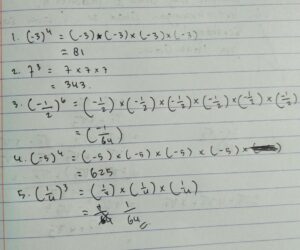 1. (-3)⁴ = (-3) × (-3) × (-3) × (-3)
= 81
2. 7³ = 7 × 7 × 7
= 343.
3. (-1/2)⁶ = (-1/2) × (-1/2) × (-1/2) × (-1/2) × (-1/2) × (-1/2)
= (-1/64)
4. (-5)⁴ = (-5) × (-5) × (-5) × (-5) ×
= 625
5. (1/4)³ = (1/4) × (1/4) × (1/4)
= 1/64